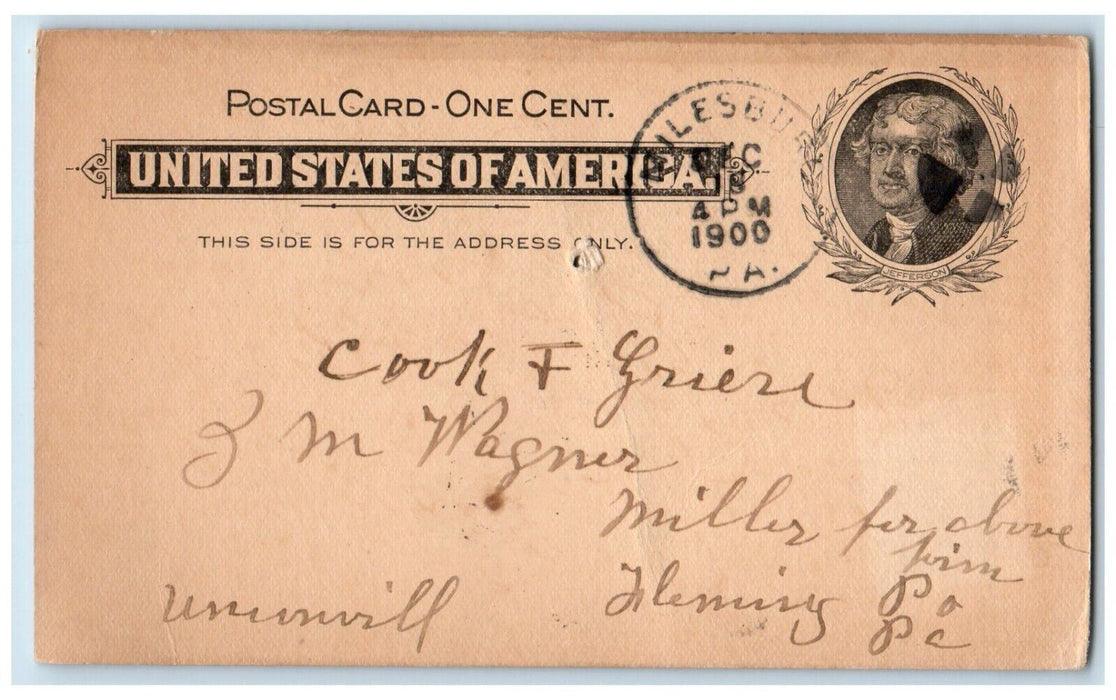 POSTAL CARD - ONE CENT.
UNITED STATES OF AMERICA.
THIS SIDE IS FOR THE ADDRESS ONLY.
MILESBU
DEC
4 PM
1900
PA.
JEFFERSON
Cook &
Z M Wagner
Miller for above
firm
Unionvill
Fleming Po
Pa